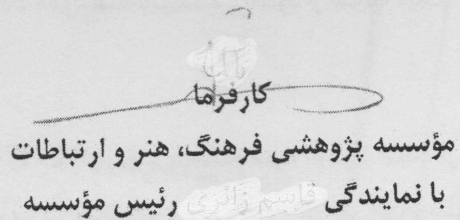 کارفرما
مؤسسه پژوهشی فرهنگ، هنر و ارتباطات
با نمایندگی قاسم زائری رئیس مؤسسه